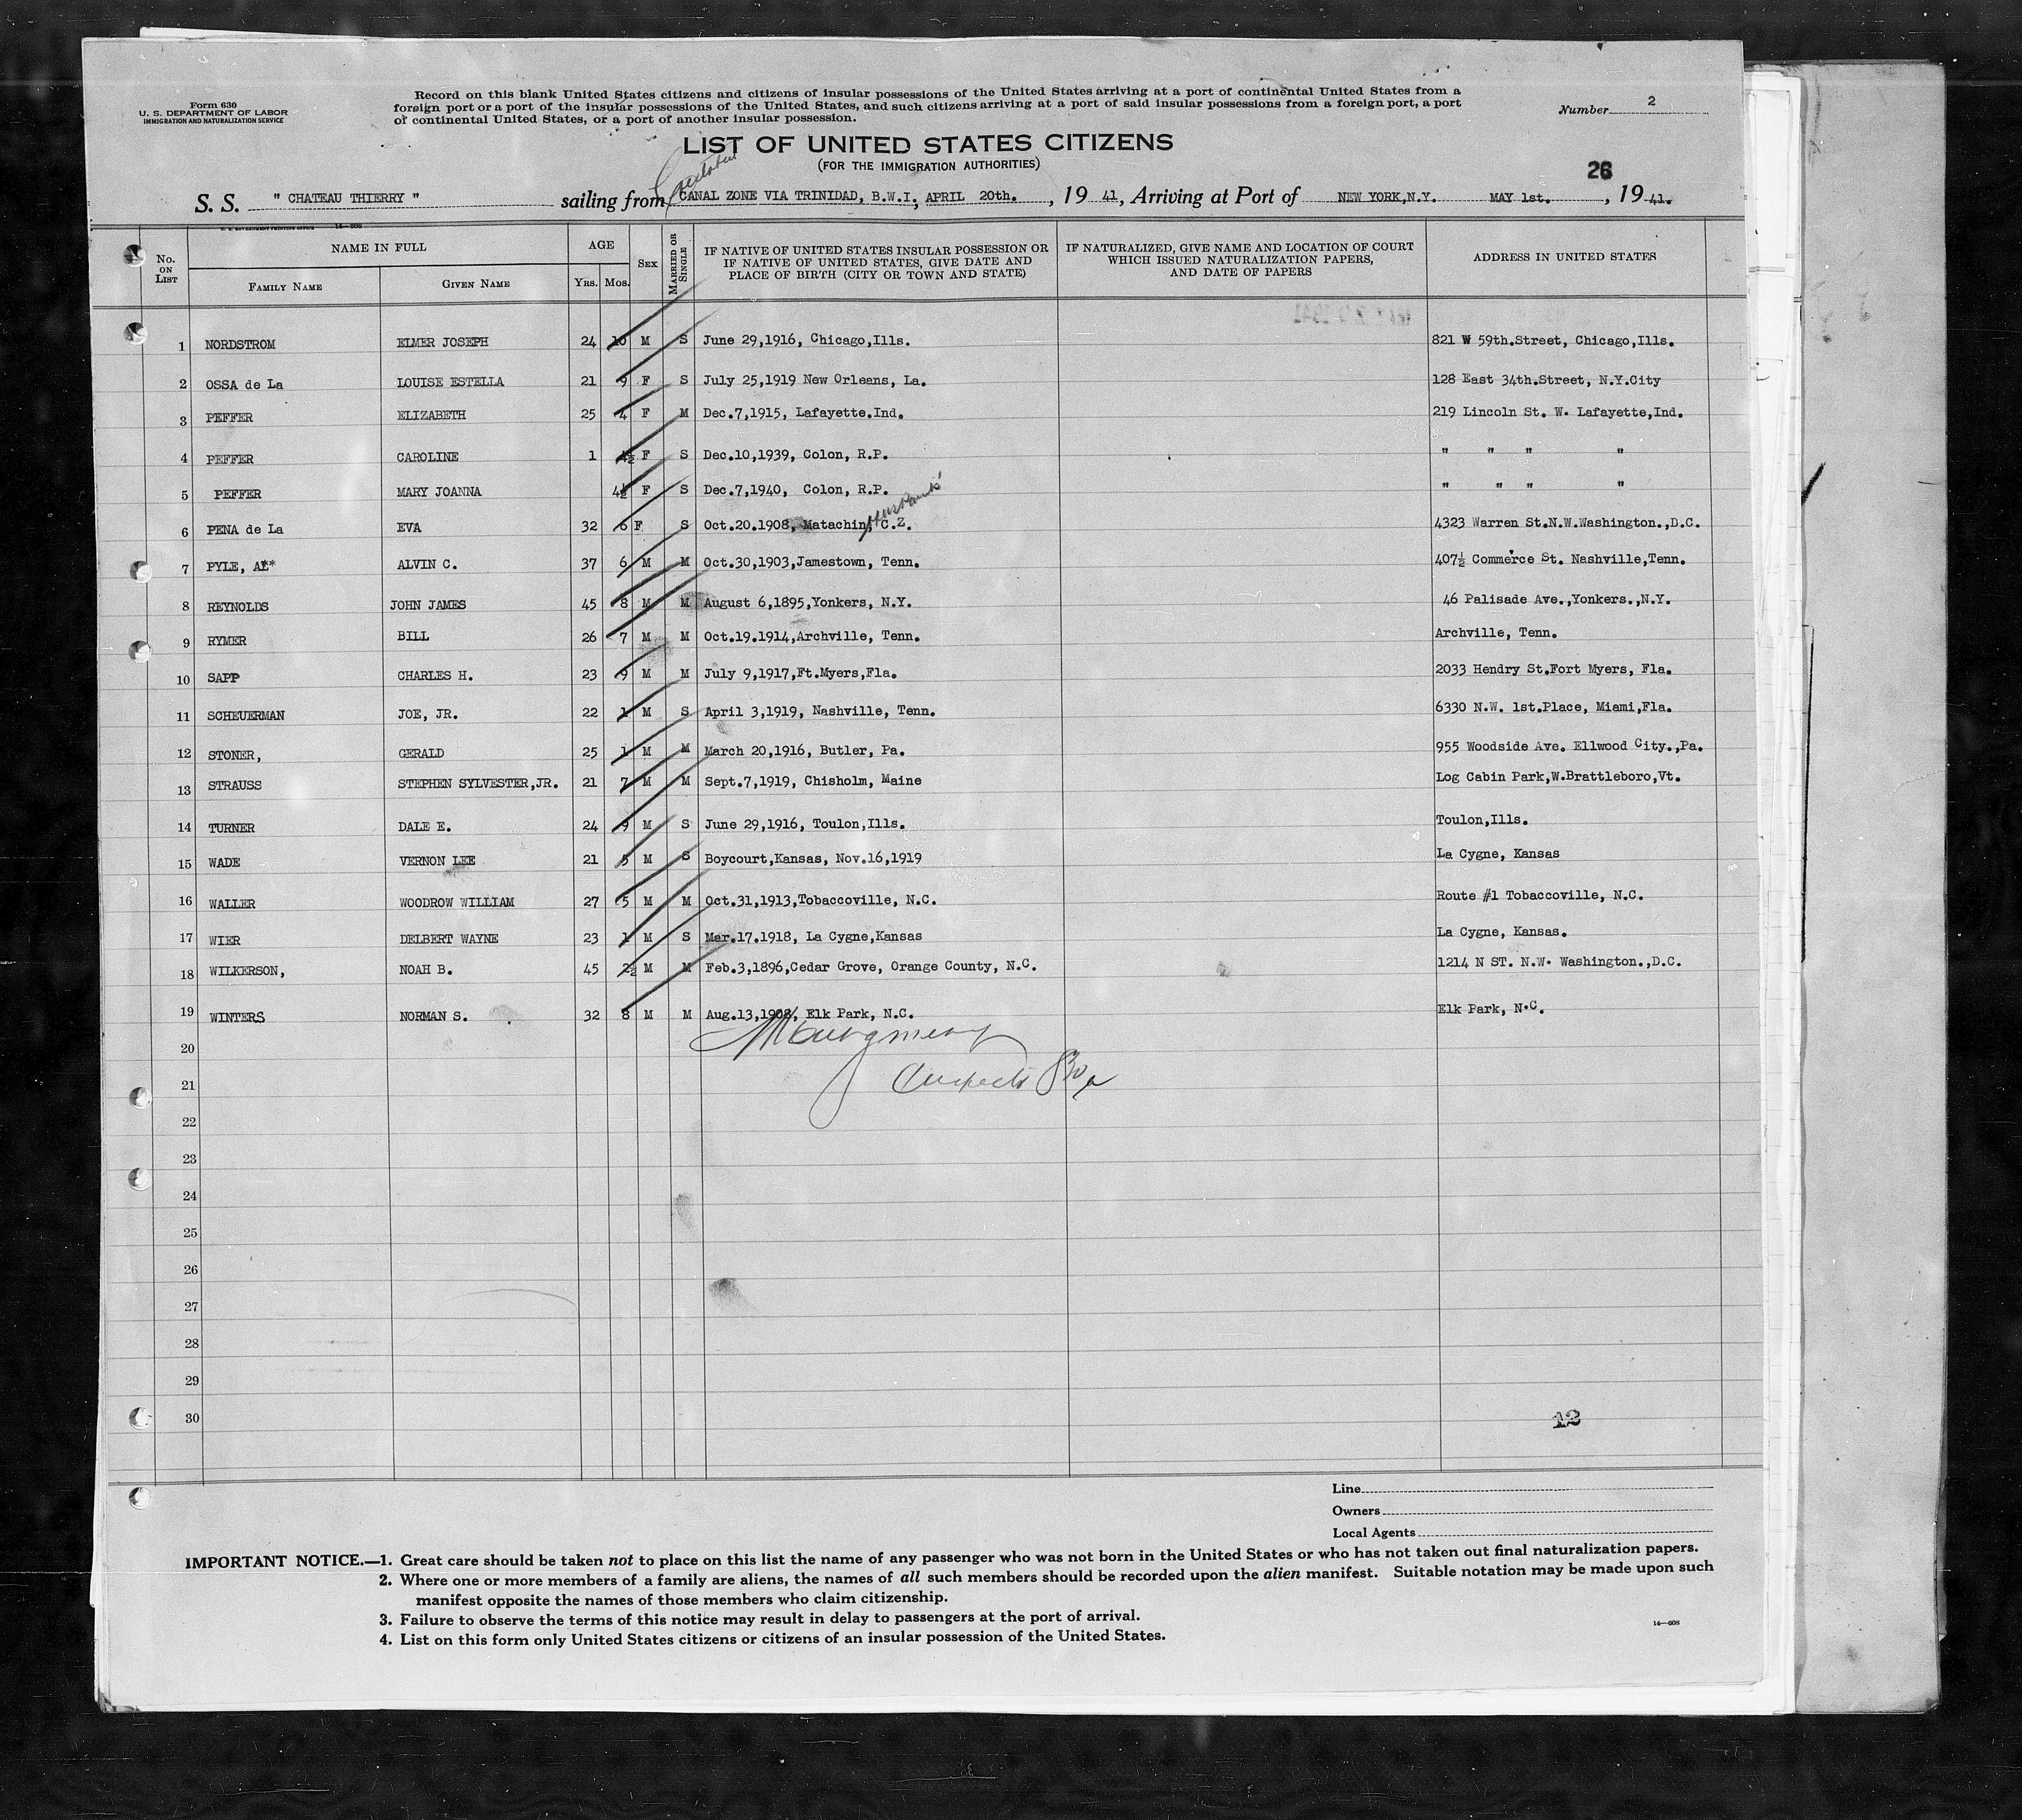 Form 630
U. S. DEPARTMENT OF LABOR
IMMIGRATION AND NATURALIZATION SERVICE
Record on this blank United States citizens and citizens of insular possessions of the United States arriving at a port of continental United States from a
foreign port or a port of the insular possessions of the United States, and such citizens arriving at a port of said insular possessions from a foreign port, a port
of continental United States, or a port of another insular possession.
Number 2
LIST OF UNITED STATES CITIZENS
(FOR THE IMMIGRATION AUTHORITIES)
26
S. S. " CHATEAU THIERRY " sailing from CANAL ZONE VIA TRINIDAD, B.W.I., APRIL 20th. , 19 41, Arriving at Port of NEW YORK,N.Y. MAY 1st. , 19 41.
U. S. GOVERNMENT PRINTING OFFICE 14—608
No. ON LIST
NAME IN FULL
FAMILY NAME
GIVEN NAME
AGE
YRS. MOS.
SEX
MARRIED OR SINGLE
IF NATIVE OF UNITED STATES INSULAR POSSESSION OR
IF NATIVE OF UNITED STATES, GIVE DATE AND
PLACE OF BIRTH (CITY OR TOWN AND STATE)
IF NATURALIZED, GIVE NAME AND LOCATION OF COURT
WHICH ISSUED NATURALIZATION PAPERS,
AND DATE OF PAPERS
ADDRESS IN UNITED STATES
1 NORDSTROM ELMER JOSEPH 24 10 M S June 29,1916, Chicago,Ills. 821 W 59th.Street, Chicago,Ills.
2 OSSA de La LOUISE ESTELLA 21 9 F S July 25,1919 New Orleans, La. 128 East 34th.Street, N.Y.City
3 PEFFER ELIZABETH 25 4 F M Dec.7,1915, Lafayette.Ind. 219 Lincoln St. W. Lafayette,Ind.
4 PEFFER CAROLINE 1 4½ F S Dec.10,1939, Colon, R.P. " " " "
5 PEFFER MARY JOANNA 4½ F S Dec.7,1940, Colon, R.P. " " " "
6 PENA de La EVA 32 6 F S Oct.20.1908, Matachin, C.Z. 4323 Warren St.N.W.Washington.,D.C.
7 PYLE, AL* ALVIN C. 37 6 M M Oct.30,1903,Jamestown, Tenn. 407½ Commerce St. Nashville,Tenn.
8 REYNOLDS JOHN JAMES 45 8 M M August 6,1895,Yonkers, N.Y. 46 Palisade Ave.,Yonkers.,N.Y.
9 RYMER BILL 26 7 M M Oct.19.1914,Archville, Tenn. Archville, Tenn.
10 SAPP CHARLES H. 23 9 M M July 9,1917,Ft.Myers,Fla. 2033 Hendry St.Fort Myers, Fla.
11 SCHEUERMAN JOE, JR. 22 1 M S April 3,1919, Nashville, Tenn. 6330 N.W. 1st.Place, Miami,Fla.
12 STONER, GERALD 25 1 M M March 20,1916, Butler, Pa. 955 Woodside Ave. Ellwood City.,Pa.
13 STRAUSS STEPHEN SYLVESTER,JR. 21 7 M M Sept.7,1919, Chisholm, Maine Log Cabin Park,W.Brattleboro,Vt.
14 TURNER DALE E. 24 9 M S June 29,1916, Toulon,Ills. Toulon,Ills.
15 WADE VERNON LEE 21 5 M S Boycourt,Kansas, Nov.16,1919 La Cygne, Kansas
16 WALLER WOODROW WILLIAM 27 5 M M Oct.31,1913,Tobaccoville, N.C. Route #1 Tobaccoville, N.C.
17 WIER DELBERT WAYNE 23 1 M S Mar.17.1918, La Cygne,Kansas La Cygne, Kansas.
18 WILKERSON, NOAH B. 45 2½ M M Feb.3,1896,Cedar Grove, Orange County, N.C. 1214 N ST. N.W. Washington.,D.C.
19 WINTERS NORMAN S. 32 8 M M Aug.13,1908, Elk Park, N.C. Elk Park, N.C.
20
21
22
23
24
25
26
27
28
29
30
12
Line
Owners
Local Agents
IMPORTANT NOTICE.—1. Great care should be taken not to place on this list the name of any passenger who was not born in the United States or who has not taken out final naturalization papers.
2. Where one or more members of a family are aliens, the names of all such members should be recorded upon the alien manifest. Suitable notation may be made upon such
manifest opposite the names of those members who claim citizenship.
3. Failure to observe the terms of this notice may result in delay to passengers at the port of arrival.
4. List on this form only United States citizens or citizens of an insular possession of the United States.
14—608